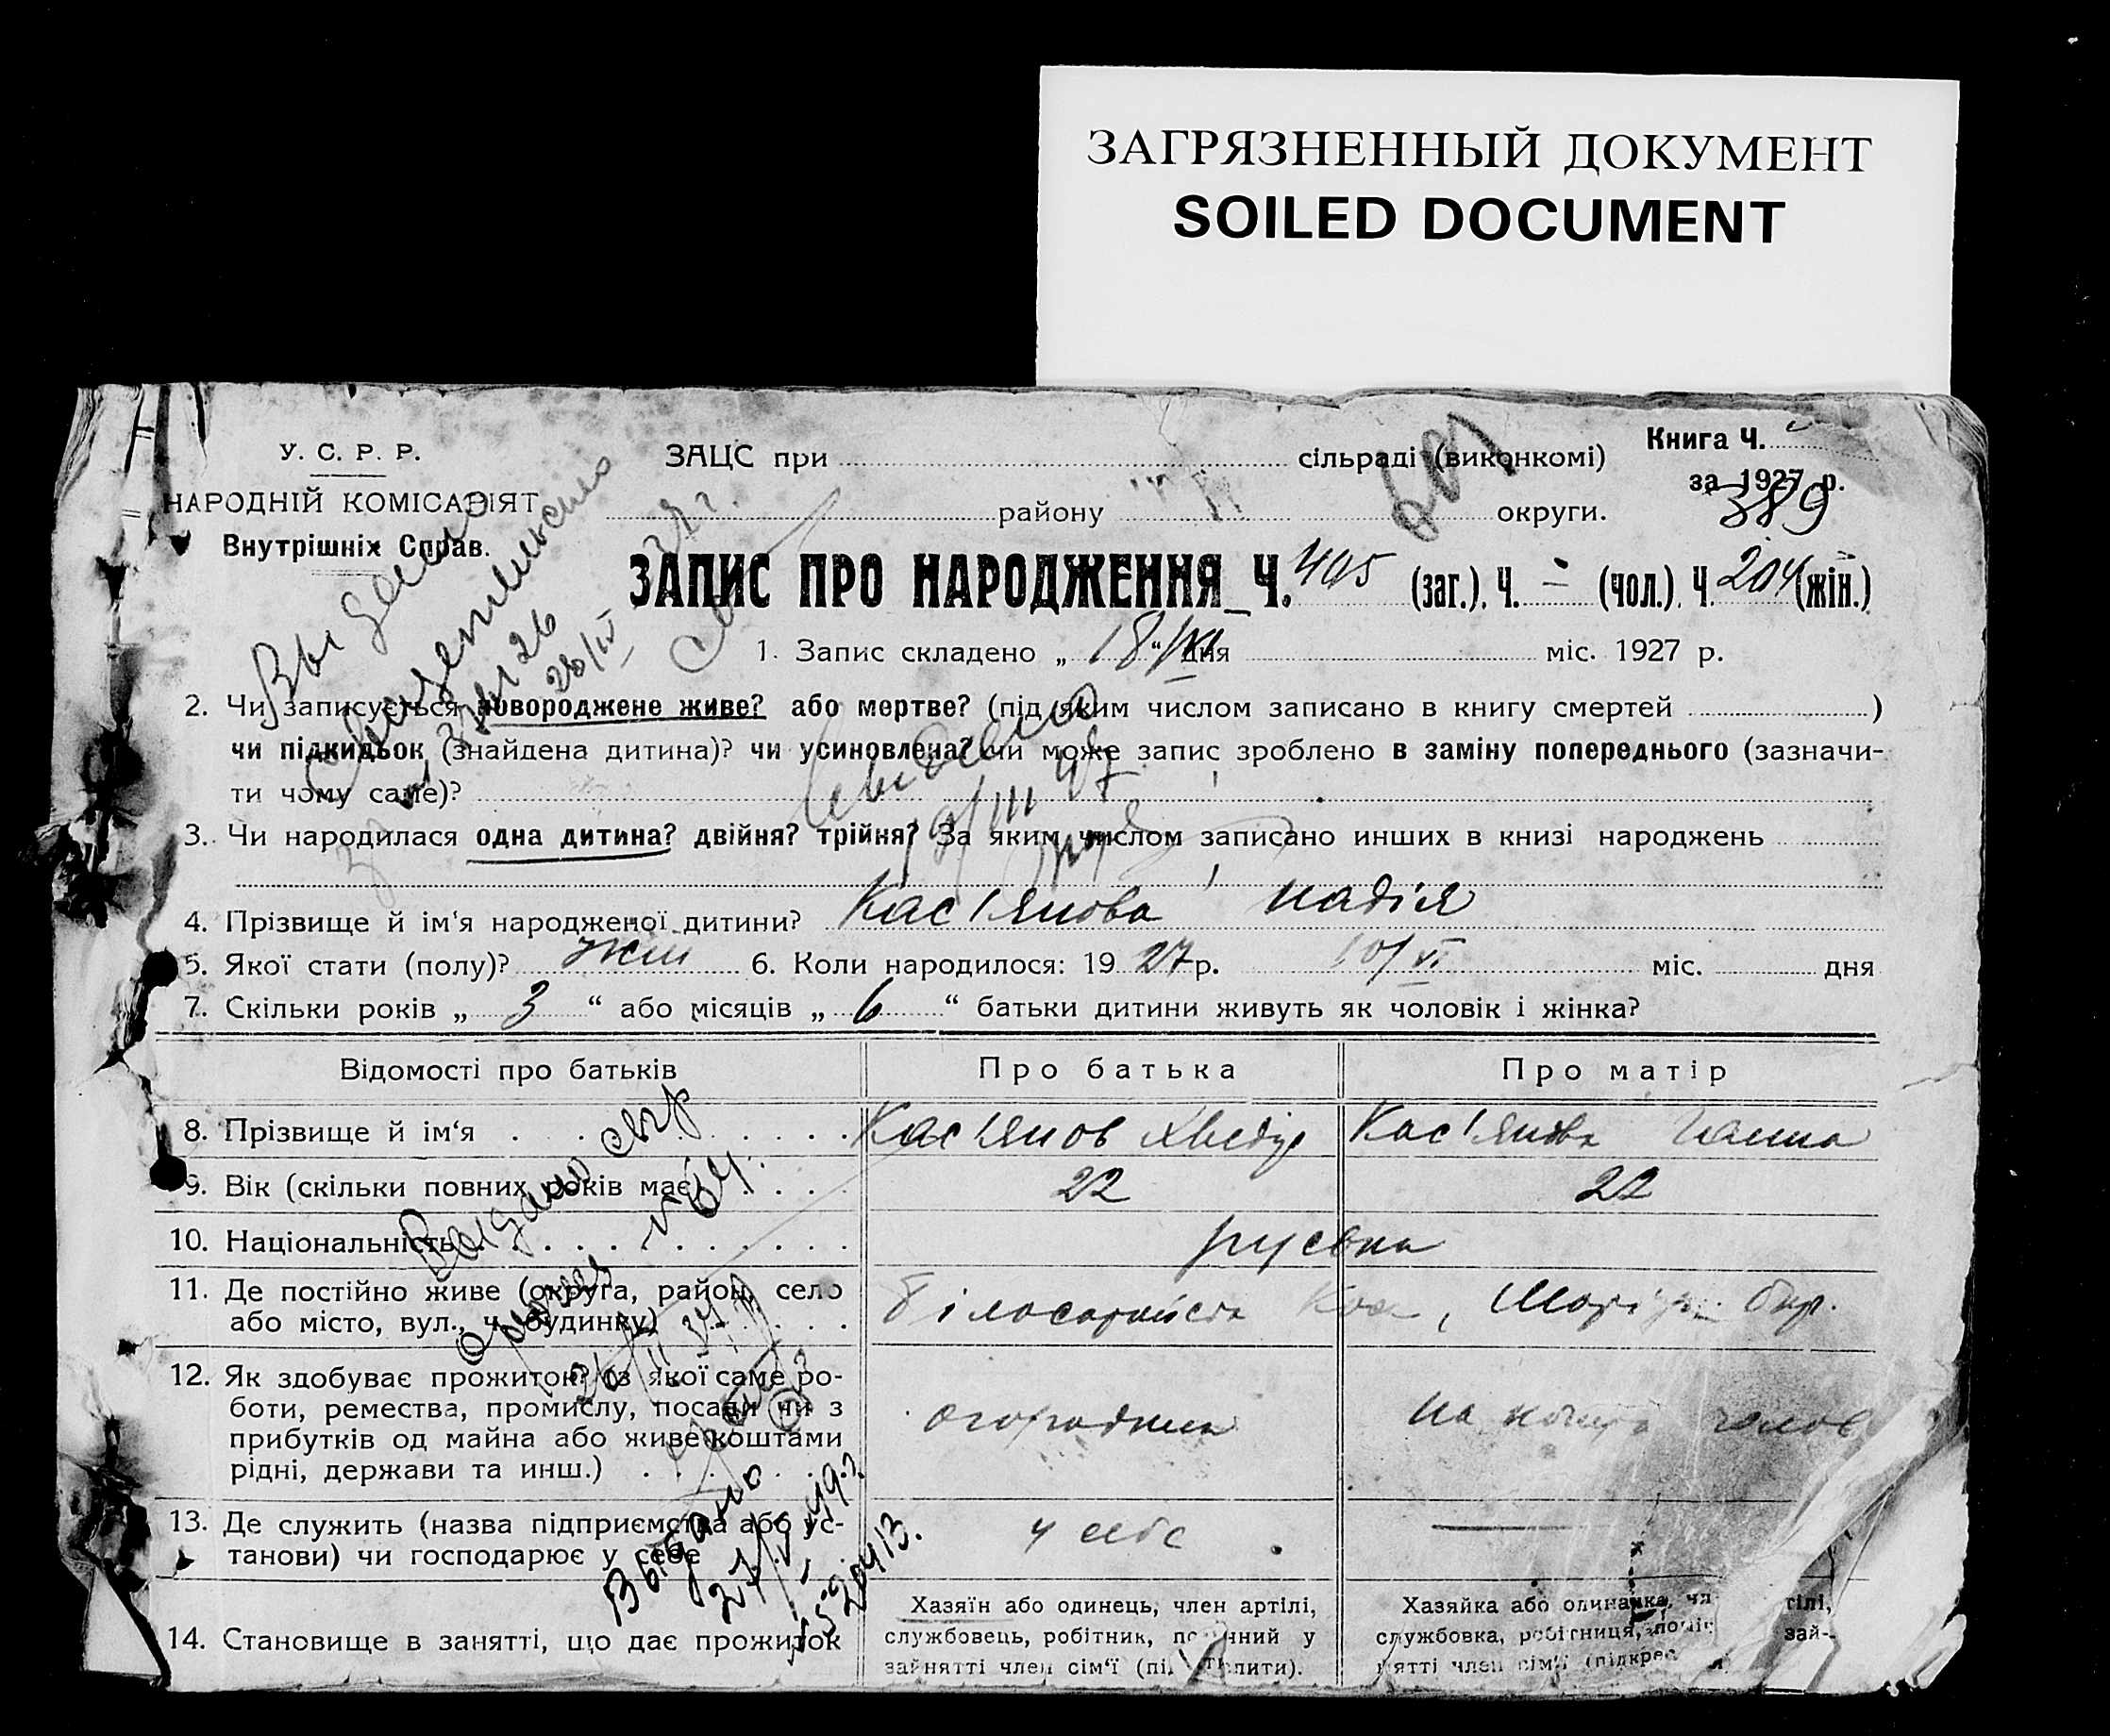 ЗАГРЯЗНЕННЫЙ ДОКУМЕНТ
SOILED DOCUMENT
У. С. Р. Р.
НАРОДНІЙ КОМІСАРІЯТ
Внутрішніх Справ.
ЗАЦС при сільраді (виконкомі)
району округи.
Книга Ч.
за 1927 р.
389
ЗАПИС ПРО НАРОДЖЕННЯ Ч. 495 (заг.). Ч. – (чол.). Ч. 204 (жін.)
1. Запис складено „ 18 “ дня міс. 1927 р.
2. Чи записується новороджене живе? або мертве? (під яким числом записано в книгу смертей )
чи підкидьок (знайдена дитина)? чи усиновлена? чи може запис зроблено в заміну попереднього (зазначи-
ти чому саме)?
3. Чи народилася одна дитина? двійня? трійня? За яким числом записано инших в книзі народжень
4. Прізвище й ім‘я народженої дитини? Кас'янова Надія
5. Якої стати (полу)? жін 6. Коли народилося: 19 27 р. 10/VI міс. дня
7. Скільки років „ 3 “ або місяців „ 6 “ батьки дитини живуть як чоловік і жінка?
Відомості про батьків Про батька Про матір
8. Прізвище й ім‘я Кас'янов Хведір Кас'янова Ганна
9. Вік (скільки повних років має) 22 22
10. Національність руська
11. Де постійно живе (округа, район, село
або місто, вул., ч. будинку) Білосарайська Коса, Маріуп. Окр.
12. Як здобуває прожиток? (з якої саме ро-
боти, ремества, промислу, посади чи з
прибутків од майна або живе коштами
рідні, держави та инш.) огородник на
13. Де служить (назва підприємства або ус-
танови) чи господарює у себе у себе —
14. Становище в занятті, що дає прожиток
Хазяїн або одинець, член артілі,
службовець, робітник, у
зайнятті член сім‘ї
Хазяйка або одиначка,
службовка, робітниця, зай-
нятті член сім‘ї
Выдели
Выдано
Выдано
27/V 49 г.